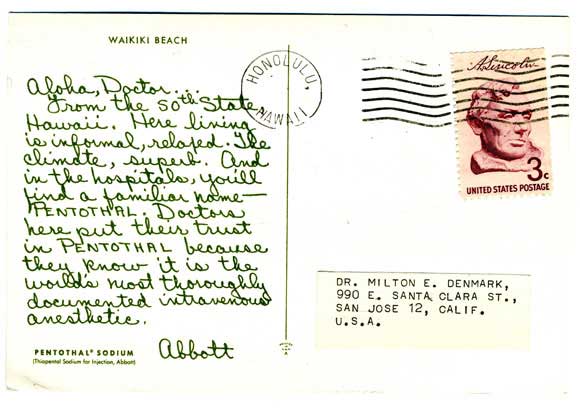 WAIKIKI BEACH
Aloha, Doctor...
From the 50th State
Hawaii. Here living
is informal, relaxed. The
climate, superb. And
in the hospitals, you'll
find a familiar name—
PENTOTHAL. Doctors
here put their trust
in PENTOTHAL because
they know it is the
world's most thoroughly
documented intravenous
anesthetic.
Abbott
PENTOTHAL® SODIUM
(Thiopental Sodium for Injection, Abbott)
HONOLULU,
HAWAII
A. Lincoln
3c
UNITED STATES POSTAGE
DR. MILTON E. DENMARK,
990 E. SANTA CLARA ST.,
SAN JOSE 12, CALIF.
U.S.A.